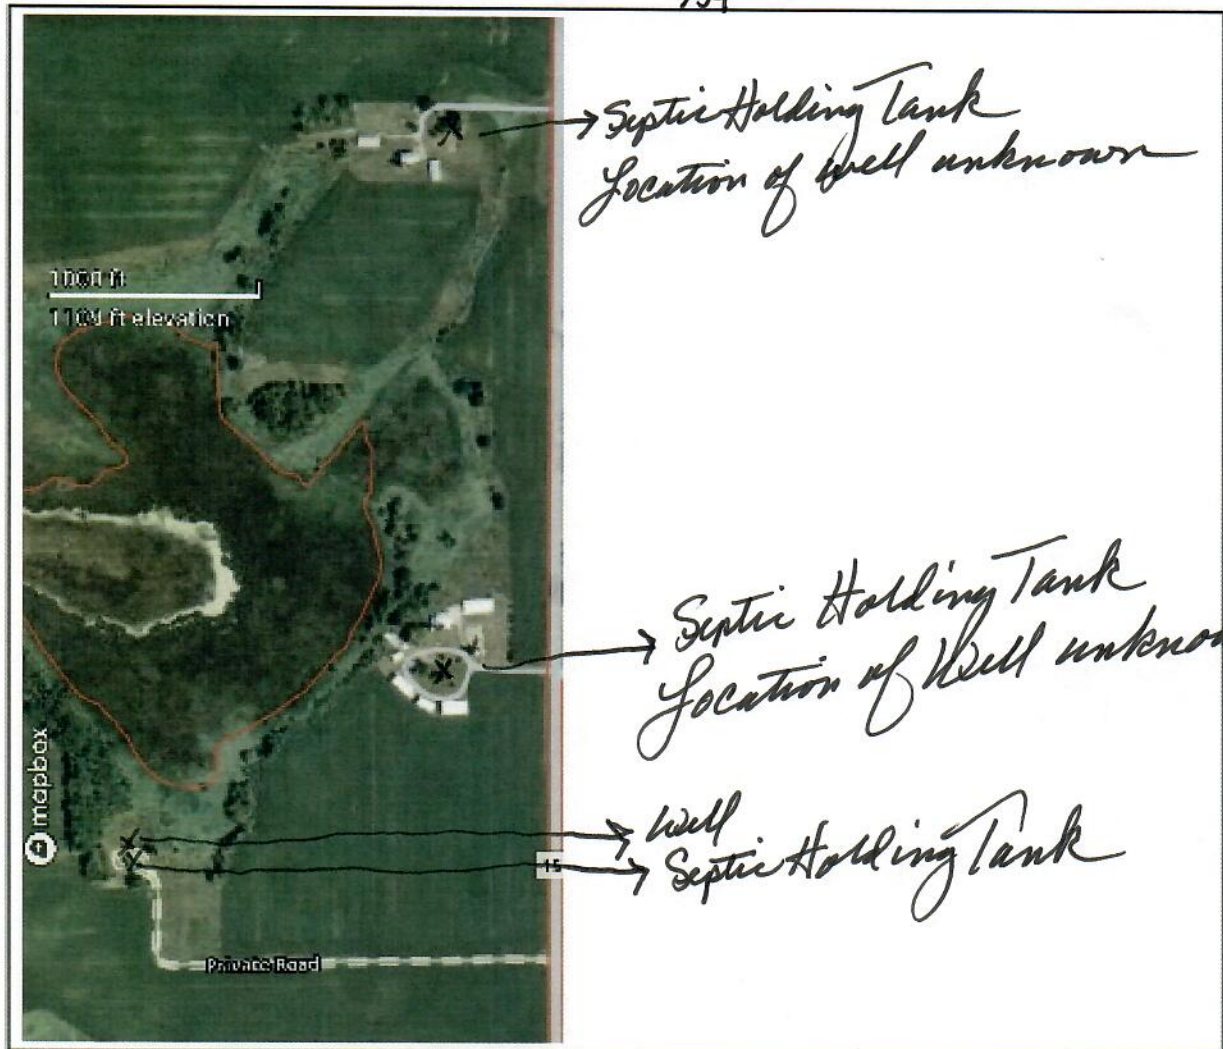 Septic Holding Tank
Location of well unknown
1000 ft
1104 ft elevation
Septic Holding Tank
Location of Well unknow
mapbox
Well
Septic Holding Tank
15
Private Road